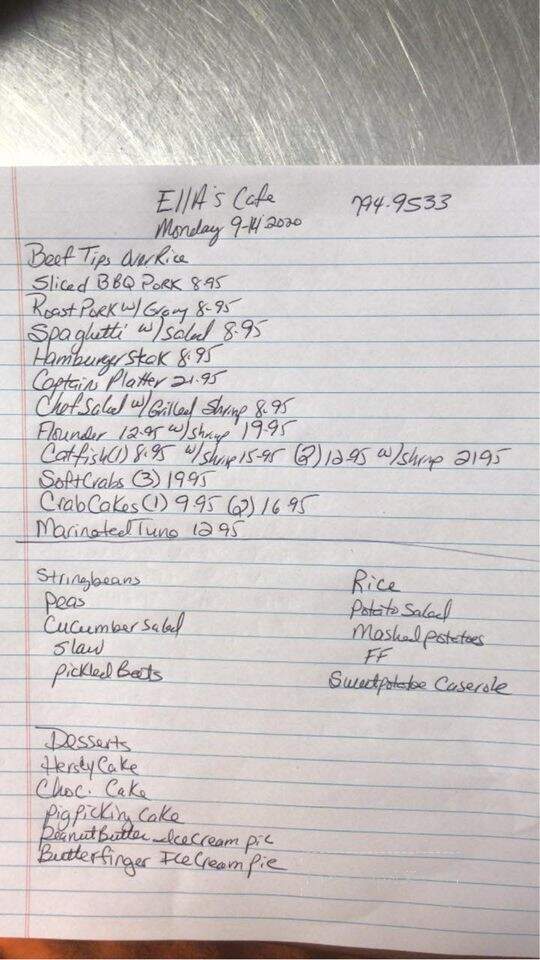 EllA's Cafe 794-9533
Monday 9-14 2020
Beef Tips Over Rice
Sliced BBQ Pork 8.95
Roast Pork w/ Gravy 8.95
Spaghetti w/ Salad 8.95
Hamburger Steak 8.95
Captains Platter 21.95
Chef Salad w/ Grilled Shrimp 8.95
Flounder 12.95 w/ shrimp 19.95
Catfish (1) 8.95 w/ shrimp 15.95 (2) 12.95 w/ shrimp 21.95
Soft Crabs (3) 19.95
Crab Cakes (1) 9.95 (2) 16.95
Marinated Tuna 12.95
Stringbeans Rice
Peas Potato Salad
Cucumber Salad Mashed potatoes
Slaw FF
Pickled Beets Sweet potatoe Caserole
Desserts
Hersty Cake
Choc. Cake
Pig Picking Cake
Peanut Butter Ice Cream pie
Butterfinger Ice Cream pie